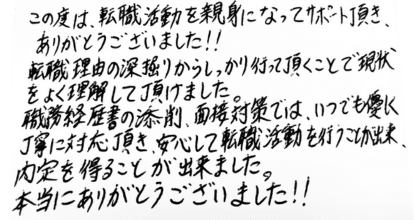 この度は、転職活動を親身になってサポート頂き、
ありがとうございました!!
転職理由の深掘りからしっかり行って頂くことで現状
をよく理解して頂けました。
職務経歴書の添削、面接対策では、いつでも優しく
丁寧に対応頂き、安心して転職活動を行うことが出来、
内定を得ることが出来ました。
本当にありがとうございました!!